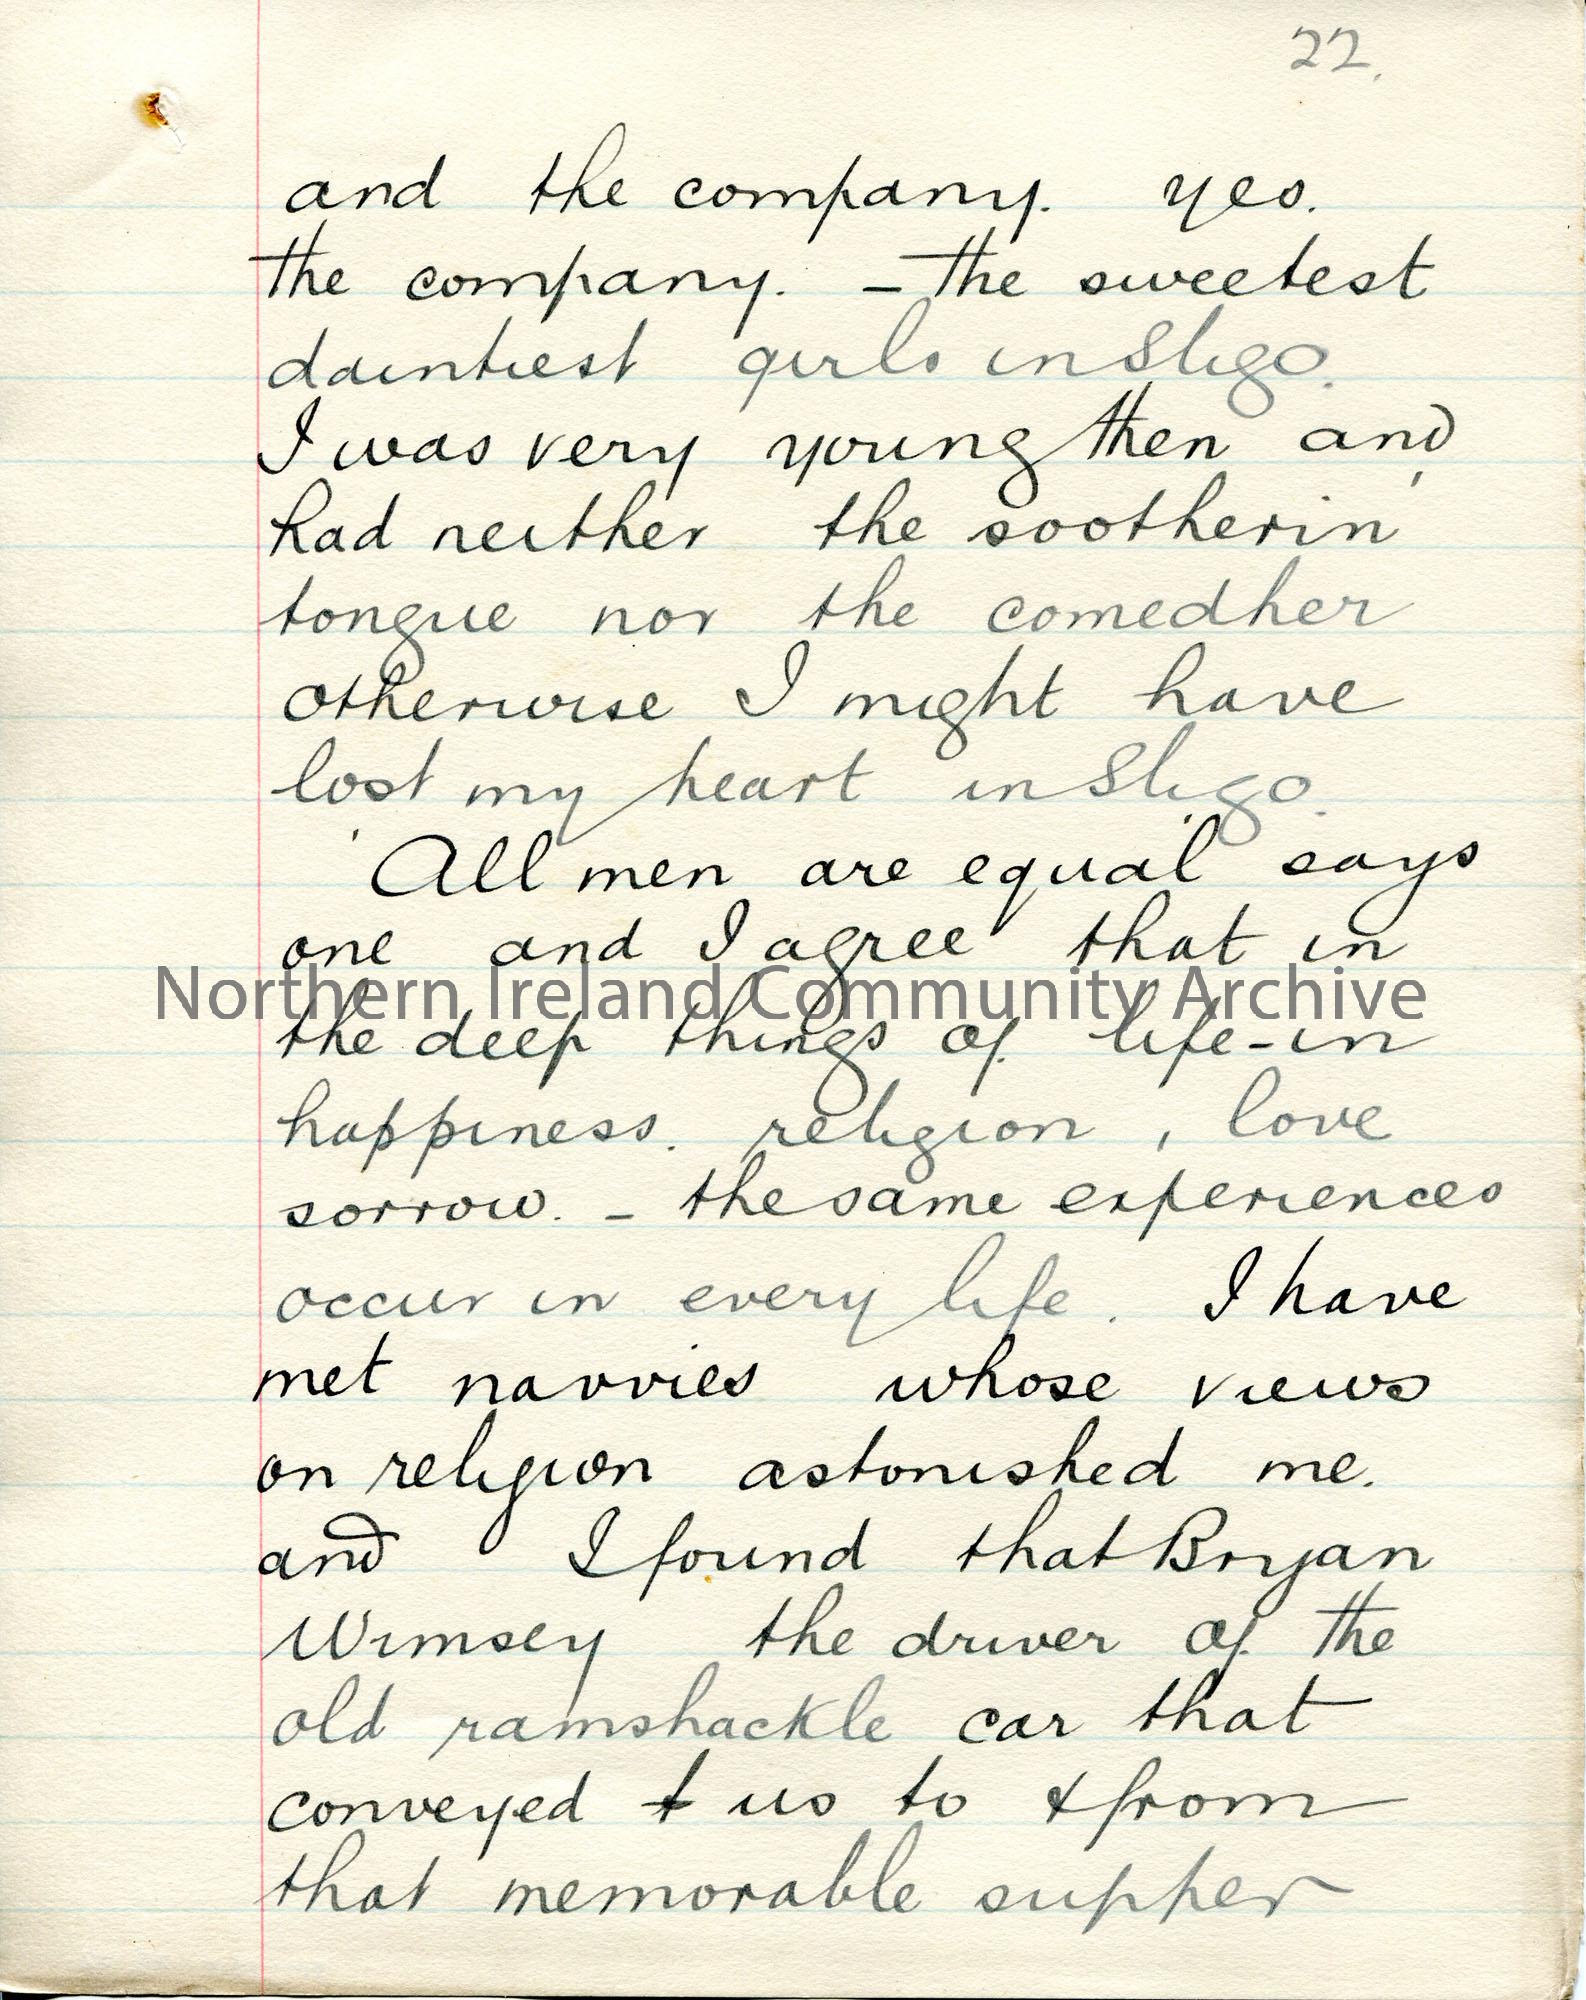 22.
and the company. yes.
the company. – the sweetest
daintiest girls in Sligo.
I was very young then and
had neither the sootherin'
tongue nor the comedher
otherwise I might have
lost my heart in Sligo.
'All men are equal' says
one and I agree that in
Northern Ireland Community Archive
the deep things of life – in
happiness. religion, love
sorrow. – the same experiences
occur in every life. I have
met navvies whose views
on religion astonished me.
and I found that Bryan
Wimsey the driver of the
old ramshackle car that
conveyed us to & from
that memorable supper